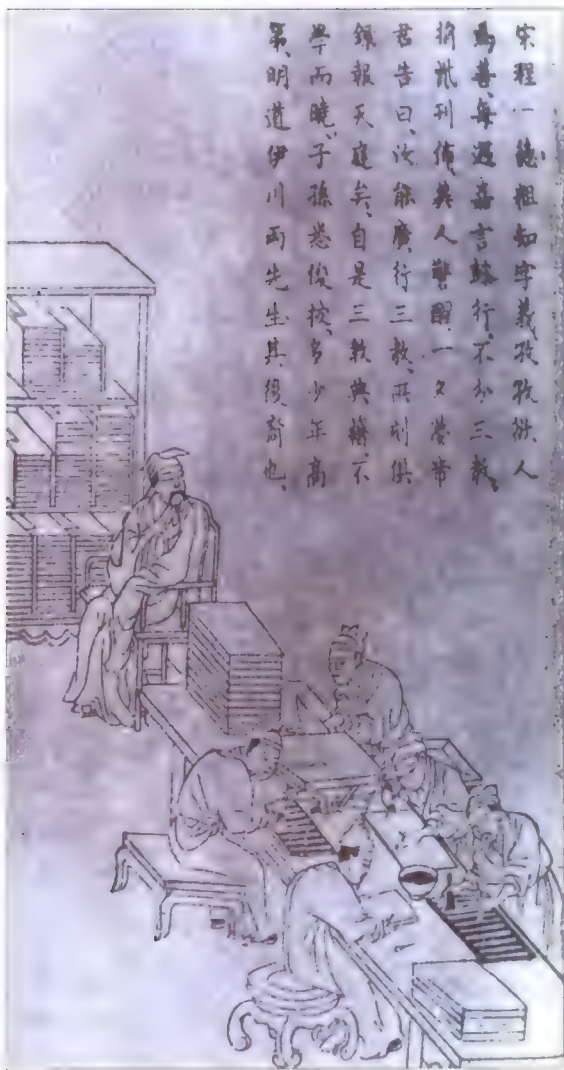 宋程一德粗知字義孜孜欲人
為善、每遇嘉言懿行、不分三教、
將就刊佈、其人警醒、一夕夢帝
君告曰、汝能廣行三教、所刻俱
錄報天庭矣、自是三教典籍、不
學而曉、子孫悉俊拔、多少年高
第、明道伊川兩先生其後裔也、